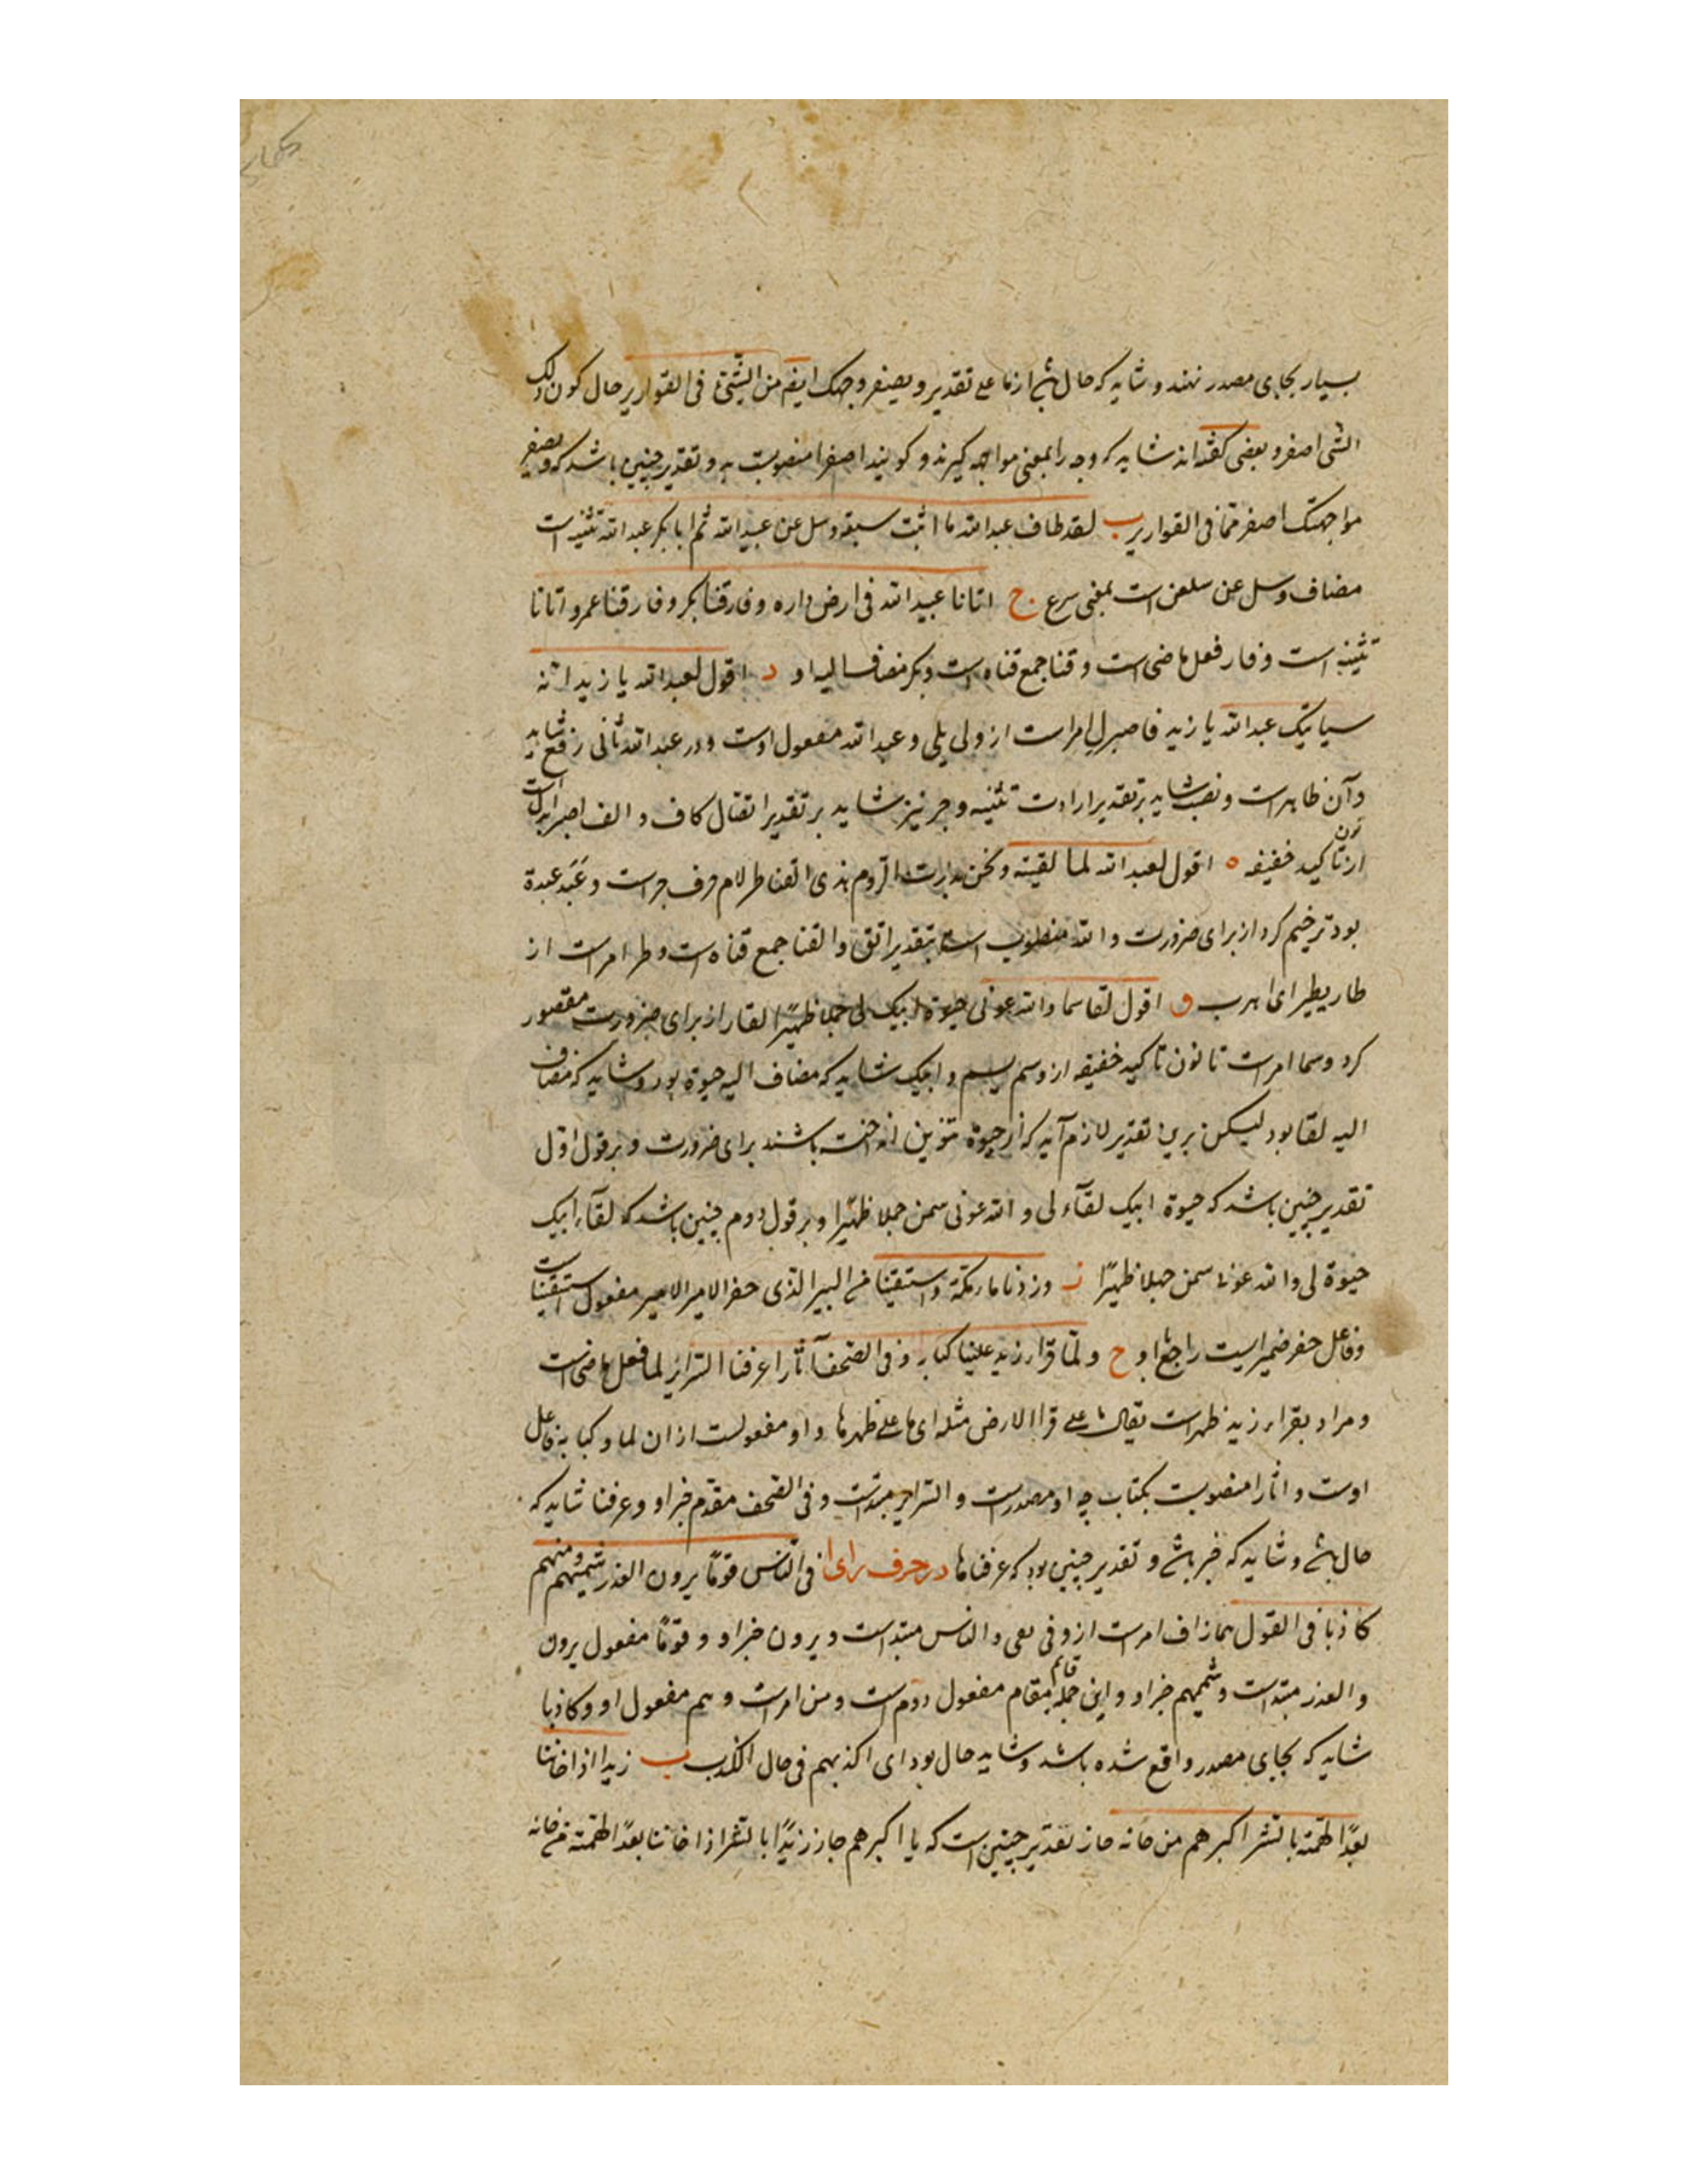 بسیار بجای مصدر نهند و شاید که حال باشد از ما علی تقدیر و یصفر وجهک ایضا من الشئ فی القواریر حال کون ذلک
الشی اصفر و بعضی گفته‌اند شاید که وجه را بمعنی مواجهه گیرند و گویند اصفرا منصوبست به و تقدیر چنین باشد که و یصفر
مواجهتک اصفر مما فی القواریر ب لقد طاف عبدا الله ما اثبت سبقه وسل عن عبیدا الله ثم ابا بکر عبدا الله تثنیه است
مضاف وسل عن سلعن است بمعنی سرع ج اتانا عبیدا الله فی ارض داره و فارقنا بکر و فارقنا عمرو اتانا
تثنیه است و فار فعل ماضی است و قنا جمع قناه است و بکر مضاف الیه او د اقول لعبدا الله یا زید انه
سیاتیک عبدا الله یا زید فاصبر لِ امر است از ولی یلی و عبدا الله مفعول اوست و در عبدا الله ثانی رفع شاید
و آن ظاهر است و نصب شاید بر تقدیر ارادت تثنیه و جر نیز شاید بر تقدیر اتقال کاف و الف اصبرا بدل است
از نون تاکید خفیفه ه اقول لعبد الله لما لقیته و نحن بدارت الروم هذی القنا طر لام حرف جر است و عَبدَ عبدة
بود ترخیم کرد از برای ضرورت و الله منصوب است بتقدیر اتق و القنا جمع قناه است و طر امر است از
طار یطیر ای اهرب و اقول لقا سما و الله عونی حیوة ابیک لی جبلا ظهیرًا لقا را از برای ضرورت مقصور
کرد و سما امر است تا نون تاکید خفیفه از وسم یسم و ابیک شاید که مضاف الیه حیوة بود و شاید که مضاف
الیه لقا بود لیکن برین تقدیر لازم آید که از حیوة تنوین انداخته باشند برای ضرورت و بر قول اول
تقدیر چنین باشد که حیوة ابیک لقآء لی و الله عونی سمن جبلا ظهیرا و بر قول دوم چنین باشد که لقآء ابیک
حیوة لی و الله عونی سمن جبلا ظهیرًا ز وزدنا ما رمکة و استقینا من البیر الذی حفر الامیر الامیر مفعول استقینا است
و فاعل حفر ضمیریست راجع باو ح ولما قرا زید علینا کتابه و فی الصحف آثارا عرفنا السرایر لما فعل ماضی است
و مراد بقراء زید ظهر است یقال ما علی قرا الارض مثله ای ما علی ظهرها و او مفعولست از ان لما و کتابه فاعل
اوست و اثارا منصوبست بکتاب چه او مصدر است و السرایر مبتداست و فی الصحف مقدم خبر او و عرفنا شاید که
حال باشد و شاید که خبر باشد و تقدیر چنین بود که عرفناها در حرف رای ا فی الناس قومًا یرون الغدر شیمتهم و منهم
کاذبا فی القول هماز اف امر است از وفی یفی و الناس مبتداست و یرون خبر او و قومًا مفعول یرون
و الغدر مبتداست و شیمتهم خبر او و این جمله قایم مقام مفعول دوم است و من امر است و هم مفعول او و کاذبا
شاید که بجای مصدر واقع شده باشد و شاید حال بود ای اکذبهم فی حال الکذب ب زیدا اذا خاننا
بعدًا لهمته بالشر اکبرهم من خانه حاز تقدیر چنین است که یا اکبرهم جاز زیدًا بالشر اذا خاننا بعدًا لهمته من خانه